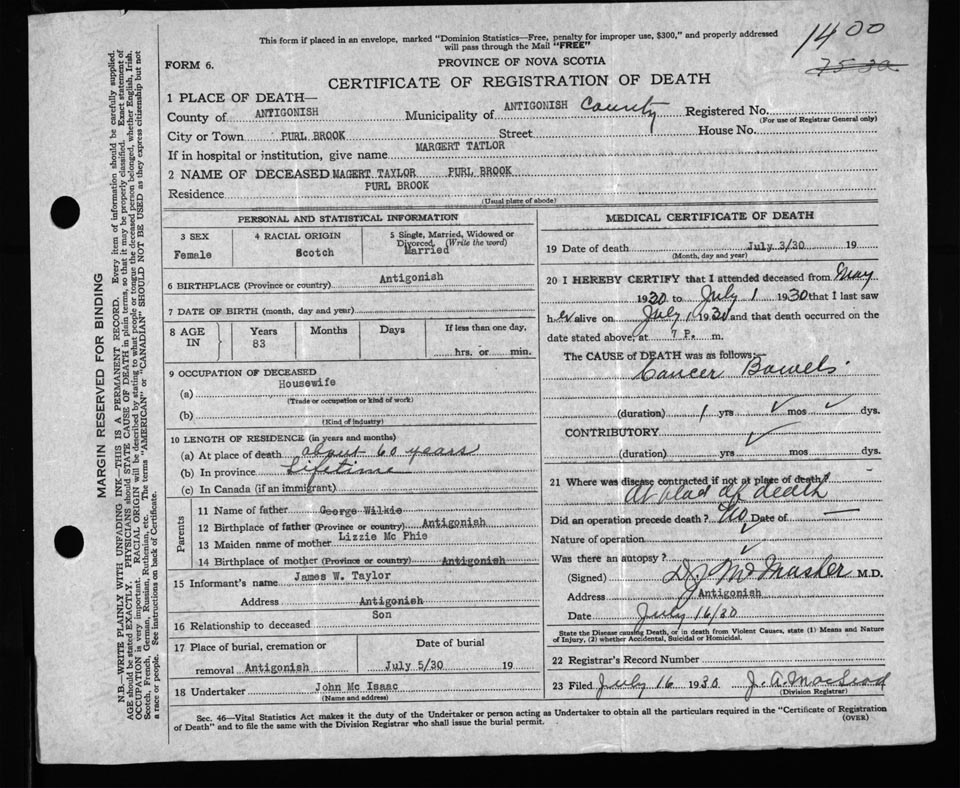 This form if placed in an envelope, marked "Dominion Statistics—Free, penalty for improper use, $300," and properly addressed
will pass through the Mail "FREE"
1400
7532
FORM 6.
PROVINCE OF NOVA SCOTIA
CERTIFICATE OF REGISTRATION OF DEATH
1 PLACE OF DEATH—
County of ANTIGONISH Municipality of ANTIGONISH County Registered No.
(For use of Registrar General only)
City or Town PURL BROOK Street House No.
If in hospital or institution, give name MARGERT TATLOR
2 NAME OF DECEASED MAGERT TAYLOR PURL BROOK
Residence PURL BROOK
(Usual place of abode)
PERSONAL AND STATISTICAL INFORMATION
3 SEX
Female
4 RACIAL ORIGIN
Scotch
5 Single, Married, Widowed or
Divorced (Write the word)
Married
6 BIRTHPLACE (Province or country) Antigonish
7 DATE OF BIRTH (month, day and year)
8 AGE IN
Years
83
Months
Days
If less than one day,
hrs. or min.
9 OCCUPATION OF DECEASED
(a) Housewife
(Trade or occupation or kind of work)
(b)
(Kind of industry)
10 LENGTH OF RESIDENCE (in years and months)
(a) At place of death about 60 years
(b) In province Lifetime
(c) In Canada (if an immigrant)
Parents
11 Name of father George Wilkie
12 Birthplace of father (Province or country) Antigonish
13 Maiden name of mother Lizzie Mc Phie
14 Birthplace of mother (Province or country) Antigonish
15 Informant's name James W. Taylor
Address Antigonish
16 Relationship to deceased Son
17 Place of burial, cremation or
removal Antigonish
Date of burial
July 5/30 19
18 Undertaker John Mc Isaac
(Name and address)
MEDICAL CERTIFICATE OF DEATH
19 Date of death July 3/30 19
(Month, day and year)
20 I HEREBY CERTIFY that I attended deceased from May
1930 to July 1 1930 that I last saw
her alive on July 1 1930 and that death occurred on the
date stated above, at 7 P. m.
The CAUSE of DEATH was as follows:—
Cancer Bowels.
(duration) 1 yrs mos dys.
CONTRIBUTORY
(duration) yrs mos dys.
21 Where was disease contracted if not at place of death?
At plac of death
Did an operation precede death? No Date of —
Nature of operation
Was there an autopsy?
(Signed) M.D.
Address Antigonish
Date July 16/30
State the Disease causing Death, or in death from Violent Causes, state (1) Means and Nature
of Injury, (2) whether Accidental, Suicidal or Homicidal.
22 Registrar's Record Number
23 Filed July 16 1930 J. A. MacLeod
(Division Registrar)
Sec. 46—Vital Statistics Act makes it the duty of the Undertaker or person acting as Undertaker to obtain all the particulars required in the "Certificate of Registration
of Death" and to file the same with the Division Registrar who shall issue the burial permit.
(OVER)
MARGIN RESERVED FOR BINDING
N.B.—WRITE PLAINLY WITH UNFADING INK—THIS IS A PERMANENT RECORD. Every item of information should be carefully supplied.
AGE should be stated EXACTLY. PHYSICIANS should STATE CAUSE OF DEATH in plain terms, so that it may be properly classified. Exact statement of
OCCUPATION is very important. RACIAL ORIGIN will be described by stating to what people or tongue the deceased person belonged, whether English, Irish,
Scotch, French, German, Russian, Ruthenian, etc. The terms "AMERICAN" or "CANADIAN" SHOULD NOT BE USED as they express citizenship but not
a race or people. See instructions on back of Certificate.